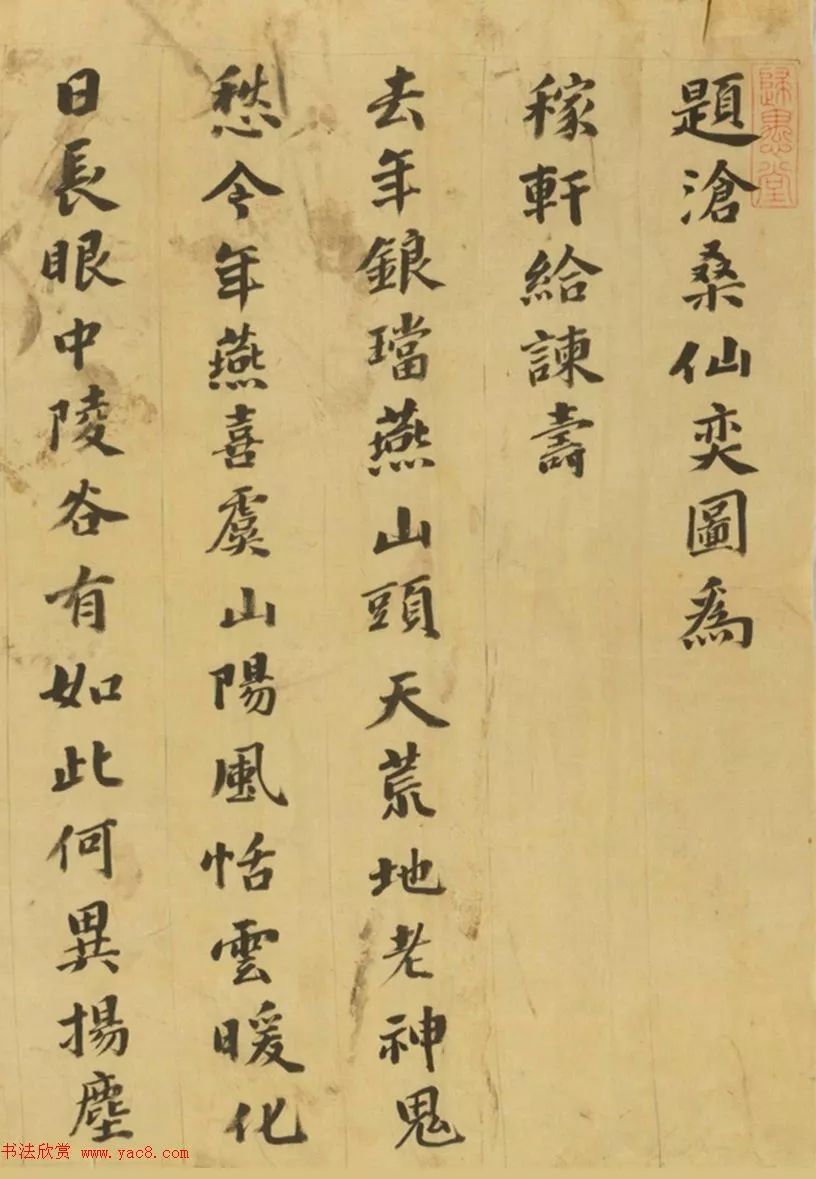 題滄桑仙奕圖為
稼軒給諫壽
去年銀璫燕山頭天荒地老神鬼
愁今年燕喜虞山陽風恬雲暖化
日長眼中陵谷有如此何異揚塵
书法欣赏 www.yac8.com